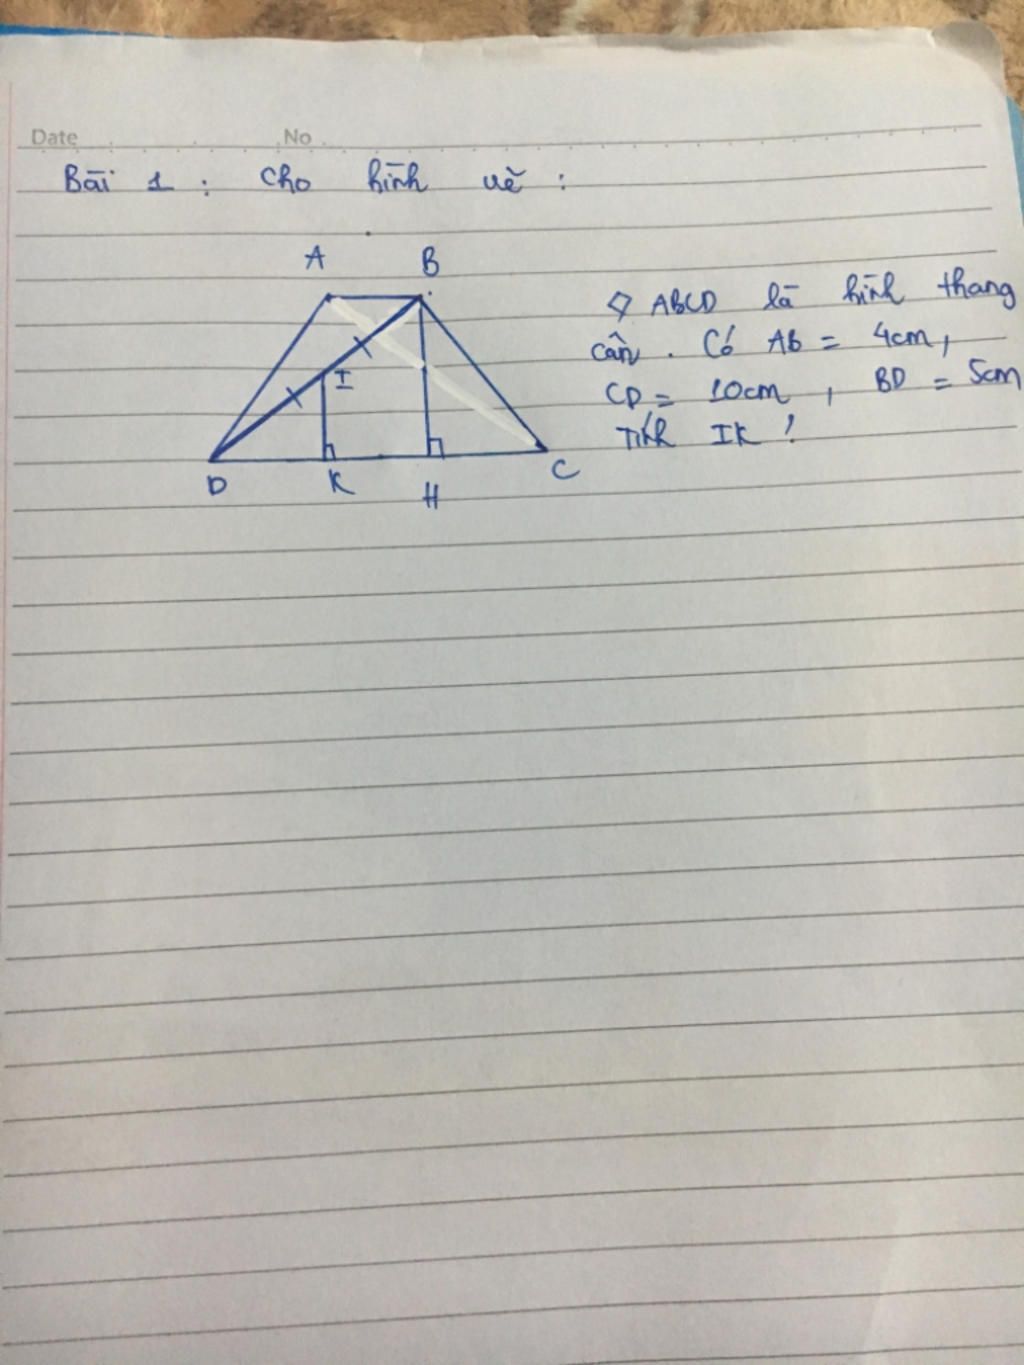 Date No
Bài 1 : Cho hình vẽ :
A B
ABCD là hình thang
cân . Có AB = 4cm,
I
CD = 10cm , BD = 5cm
Tính IK !
D K H C